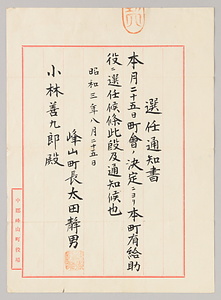 選任通知書
本月二十五日町會ノ決定ニヨリ本町有給助
役ニ選任候條此段及通知候也
昭和三年八月二十五日
峰山町長太田靜男
小林善九郎殿